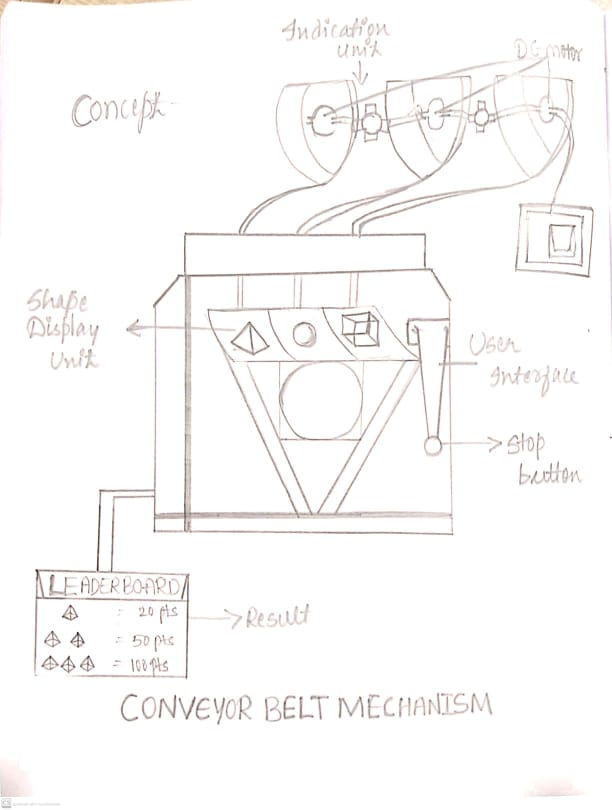 Indication
Unit
DC motor
Concept-
Shape
Display
Unit
User
Interface
Stop
button
LEADERBOARD
= 20 pts
= 50 pts
= 100 pts
Result
CONVEYOR BELT MECHANISM